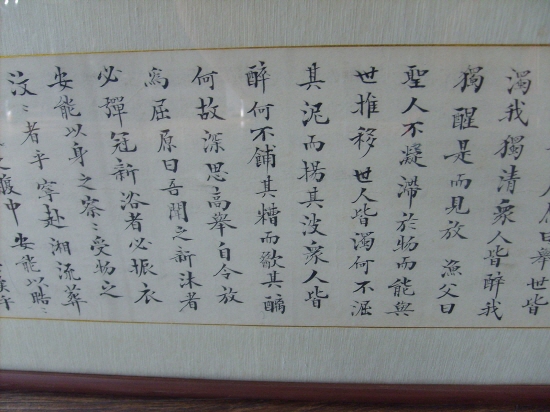 原曰舉世皆
濁我獨清衆人皆醉我
獨醒是而見放 漁父曰
聖人不凝滯於物而能與
世推移 世人皆濁何不淈
其泥而揚其波衆人皆
醉何不餔其糟而歠其醨
何故深思高舉自令放
為屈原曰吾聞之新沐者
必彈冠新浴者必振衣
安能以身之察〻受物之
汶〻者乎寧赴湘流葬
腹中 安能以皓〻